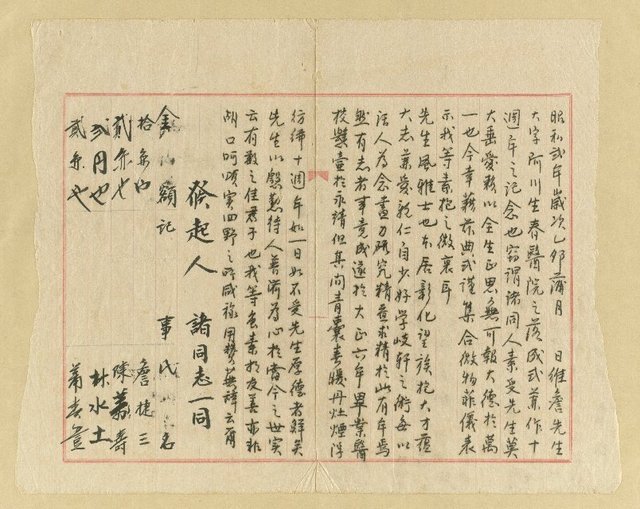 昭和貳年歲次乙卯 月 日維詹先生
大字阿川生春醫院之落成式兼作十
週年之記念也窃謂諸同人素受先生莫
大垂愛務以全生正思無可報大德於萬
一也今幸務 曲武謹集合微物菲儀表
示我等素抱之微衷耳
先生風雅士也本居彰化望族抱大才蘊
大志兼愛親仁自少好学岐軒之術每以
活人為念盡力研究精益求精於此有年焉
然有志者事竟成遂於大正六年畢業醫
校懸壺於永靖但其間青囊春暖丹灶煙浮
彷彿十週年如一日如不受先生厚德者鮮矣
先生以慇懃待人善術為心於當今之世實
云有數之佳君子也我等 素於友善亦非
胡口呵頌實四野之所咸 用贅蕪詞云爾
發起人 諸同志一同
金 額記 事 氏 名
拾 也 詹捷三
貳 也 陳 壽
弍円也 林水土
貳 也 蕭 壹